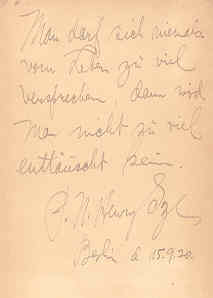 Man darf sich niemals
vom Leben zu viel
versprechen, dann wird
man nicht zu viel
enttäuscht sein.
P. N. Henry
Berlin d 15.9.20.